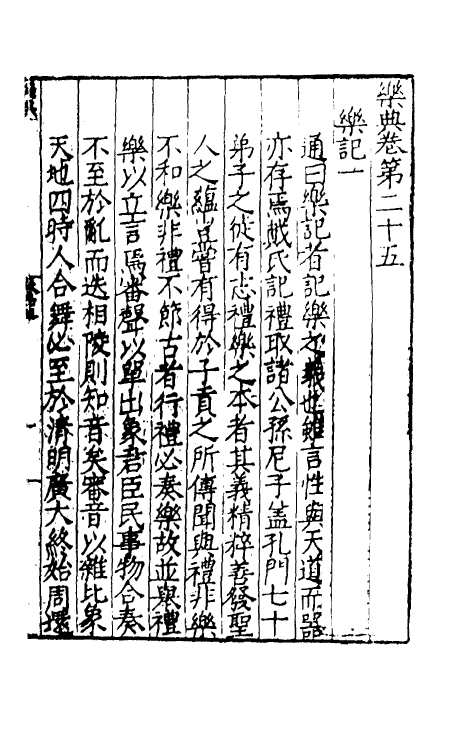 樂典卷第二十五
樂記一
通曰樂記者記樂之義也雖言性與天道而器
亦存焉戴氏記禮取諸公孫尼子盖孔門七十
弟子之徒有志禮樂之本者其義精粹善發聖
人之蘊豈嘗有得於子貢之所傳聞與禮非樂
不和樂非禮不節古者行禮必奏樂故並與禮
樂以立言焉審聲以單出象君臣民事物合奏
不至於亂而迭相陵則知音矣審音以雜比象
天地四時人合舞必至於清明廣大終始周還